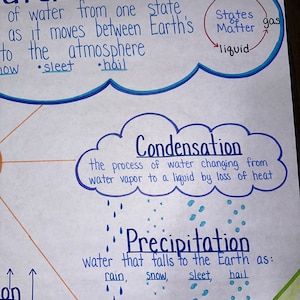 of water from one state
as it moves between Earth's
to the atmosphere
• sleet • hail
States of
Matter
gas
liquid
Condensation
the process of water changing from
water vapor to a liquid by loss of heat
Precipitation
water that falls to the Earth as:
rain snow sleet hail